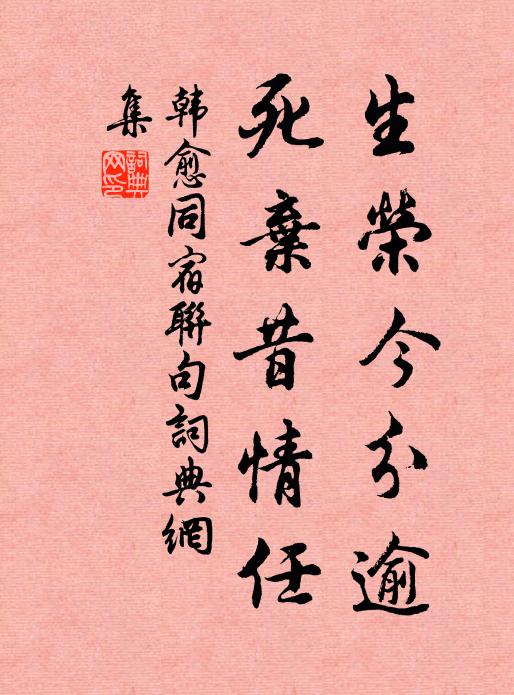 生榮今分逾
死棄昔情任
韩愈同宿聯句詞典網
集
詞典网印